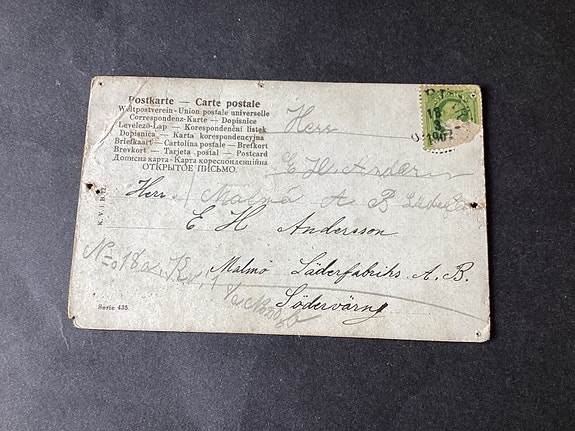 Postkarte — Carte postale
Weltpostverein - Union postale universelle
Correspondenz-Karte — Dopisnice
Levelező-Lap — Korespondenčai listek
Dopisnica — Karta korespondencyjna
Briefkaart — Cartolina postale — Brefkort
Brevkort — Tarjeta postal — Postcard
Дописна карта - Карта кореспонденційна
ОТКРЫТОЕ ПИСЬМО.
18
1907
Herr
E H Anderson
Malmö A B
Herr
E H Andersson
Malmö Läderfabriks A. B.
Södervärn
K. V. i. B. 12
No 18a
Serie 435